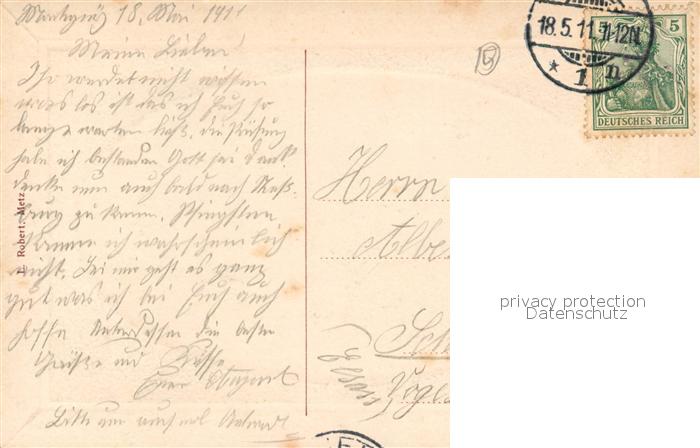 18. Mai 1911
Meine Lieben!
Ihr werdet nicht wissen
was los ist das ich Euch so
lange warten ließ. die Prüfung
habe ich bestanden Gott sei Dank
denke nun auch bald nach Straß-
burg zu kommen. Pfingsten
komme ich wahrscheinlich
nicht. Bei mir geht es ganz
gut was ich bei Euch auch
hoffe Unterdessen die besten
Grüße und Küsse
Euer August
Bitte um auch mal Antwort
J. Robert, Metz
18.5.11.11-12N.
* 1 n
5
DEUTSCHES REICH
Herrn
Albe
Sch
(Elsass)
Voge
privacy protection
Datenschutz